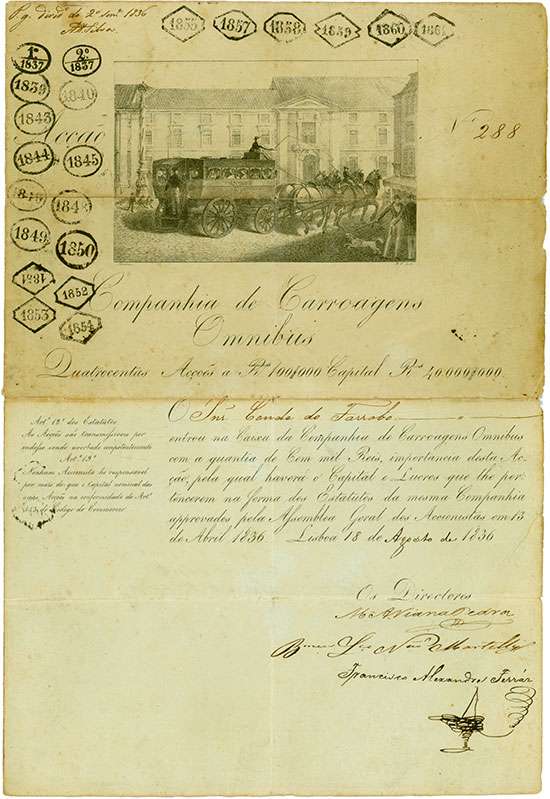 Pg. divdº do 2º Semº 1836
1855 1857 1858 1859 1860 1861
1º 1837
2º 1837
1839 1840
1843
Acção
Nº 288
1844 1845
1848
1849 1850
1851
1852
1853
1854
Companhia de Carroagens
Omnibus
Quatrocentas Acções a Rs. 100$000 Capital Rs. 40.000$000
Artº 12º dos Estatutos
As Acções são transmissiveis por
endosso sendo averbado competentemente
Artº 13º
Nenhum Accionista he responsavel
por mais do que o Capital nominal das
suas Acções na conformidade do Artº
do Codigo do Commercio
O Snr. Conde do Farrobo
entrou na Caixa da Companhia de Carroagens Omnibus
com a quantia de Cem mil Reis, importancia desta Ac-
ção, pela qual haverá o Capital e Lucros que lhe per-
tencerem na forma dos Estatutos da mesma Companhia
approvados pela Assemblea Geral dos Accionistas em 13
de Abril 1836. Lisboa 18 de Agosto de 1836
Os Directores
M A Viana Pedra
Francisco Alexandre Ferrár